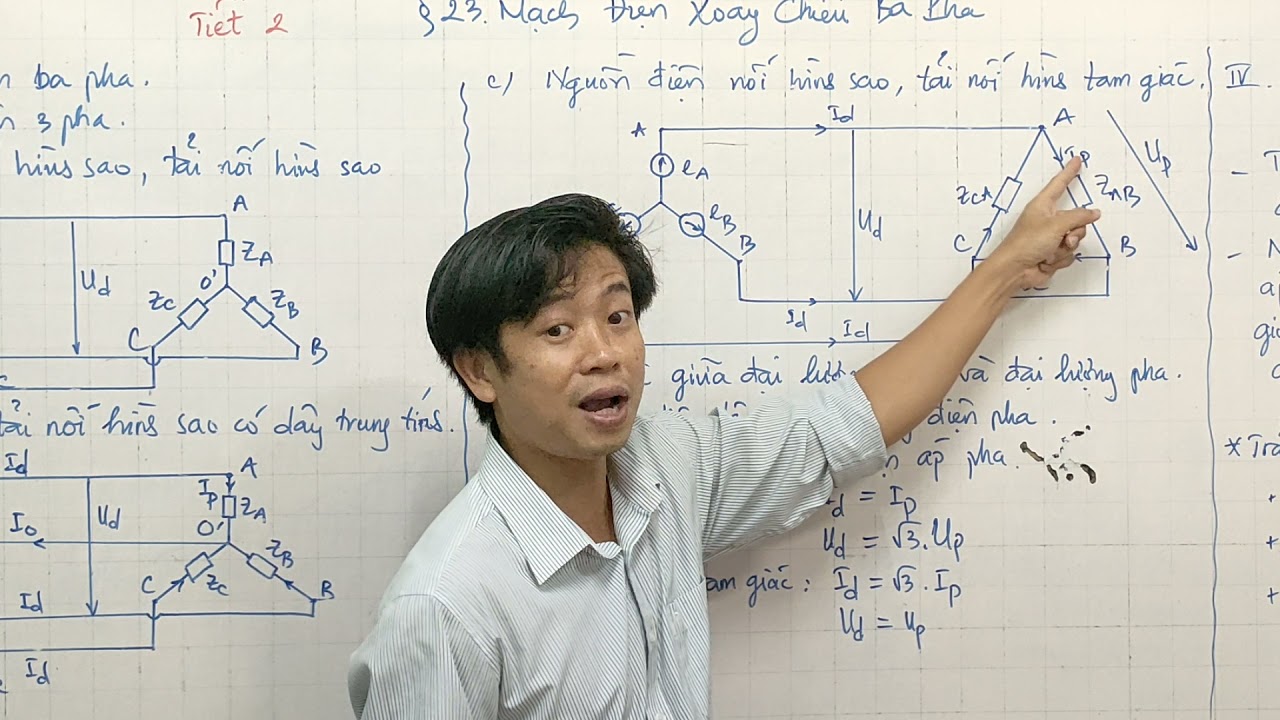 Tiết 2
§23. Mạch Điện Xoay Chiều Ba Pha
ba pha.
3 pha.
hình sao, tải nối hình sao
A
ZA
Ud
O'
ZC
ZB
C
B
tải nối hình sao có dây trung tính.
Id
A
Ip
ZA
Ud
I0
O'
ZB
C
ZC
B
Id
Id
c) Nguồn điện nối hình sao, tải nối hình tam giác.
Id
A
A
eA
Ip
Up
ZCA
ZAB
eB
Ud
B
C
B
Id
Id
giữa đại và đại lượng pha.
điện pha.
áp pha.
= Ip
Ud = √3.Up
giác: Id = √3.Ip
Ud = Up
IV.
* Trả